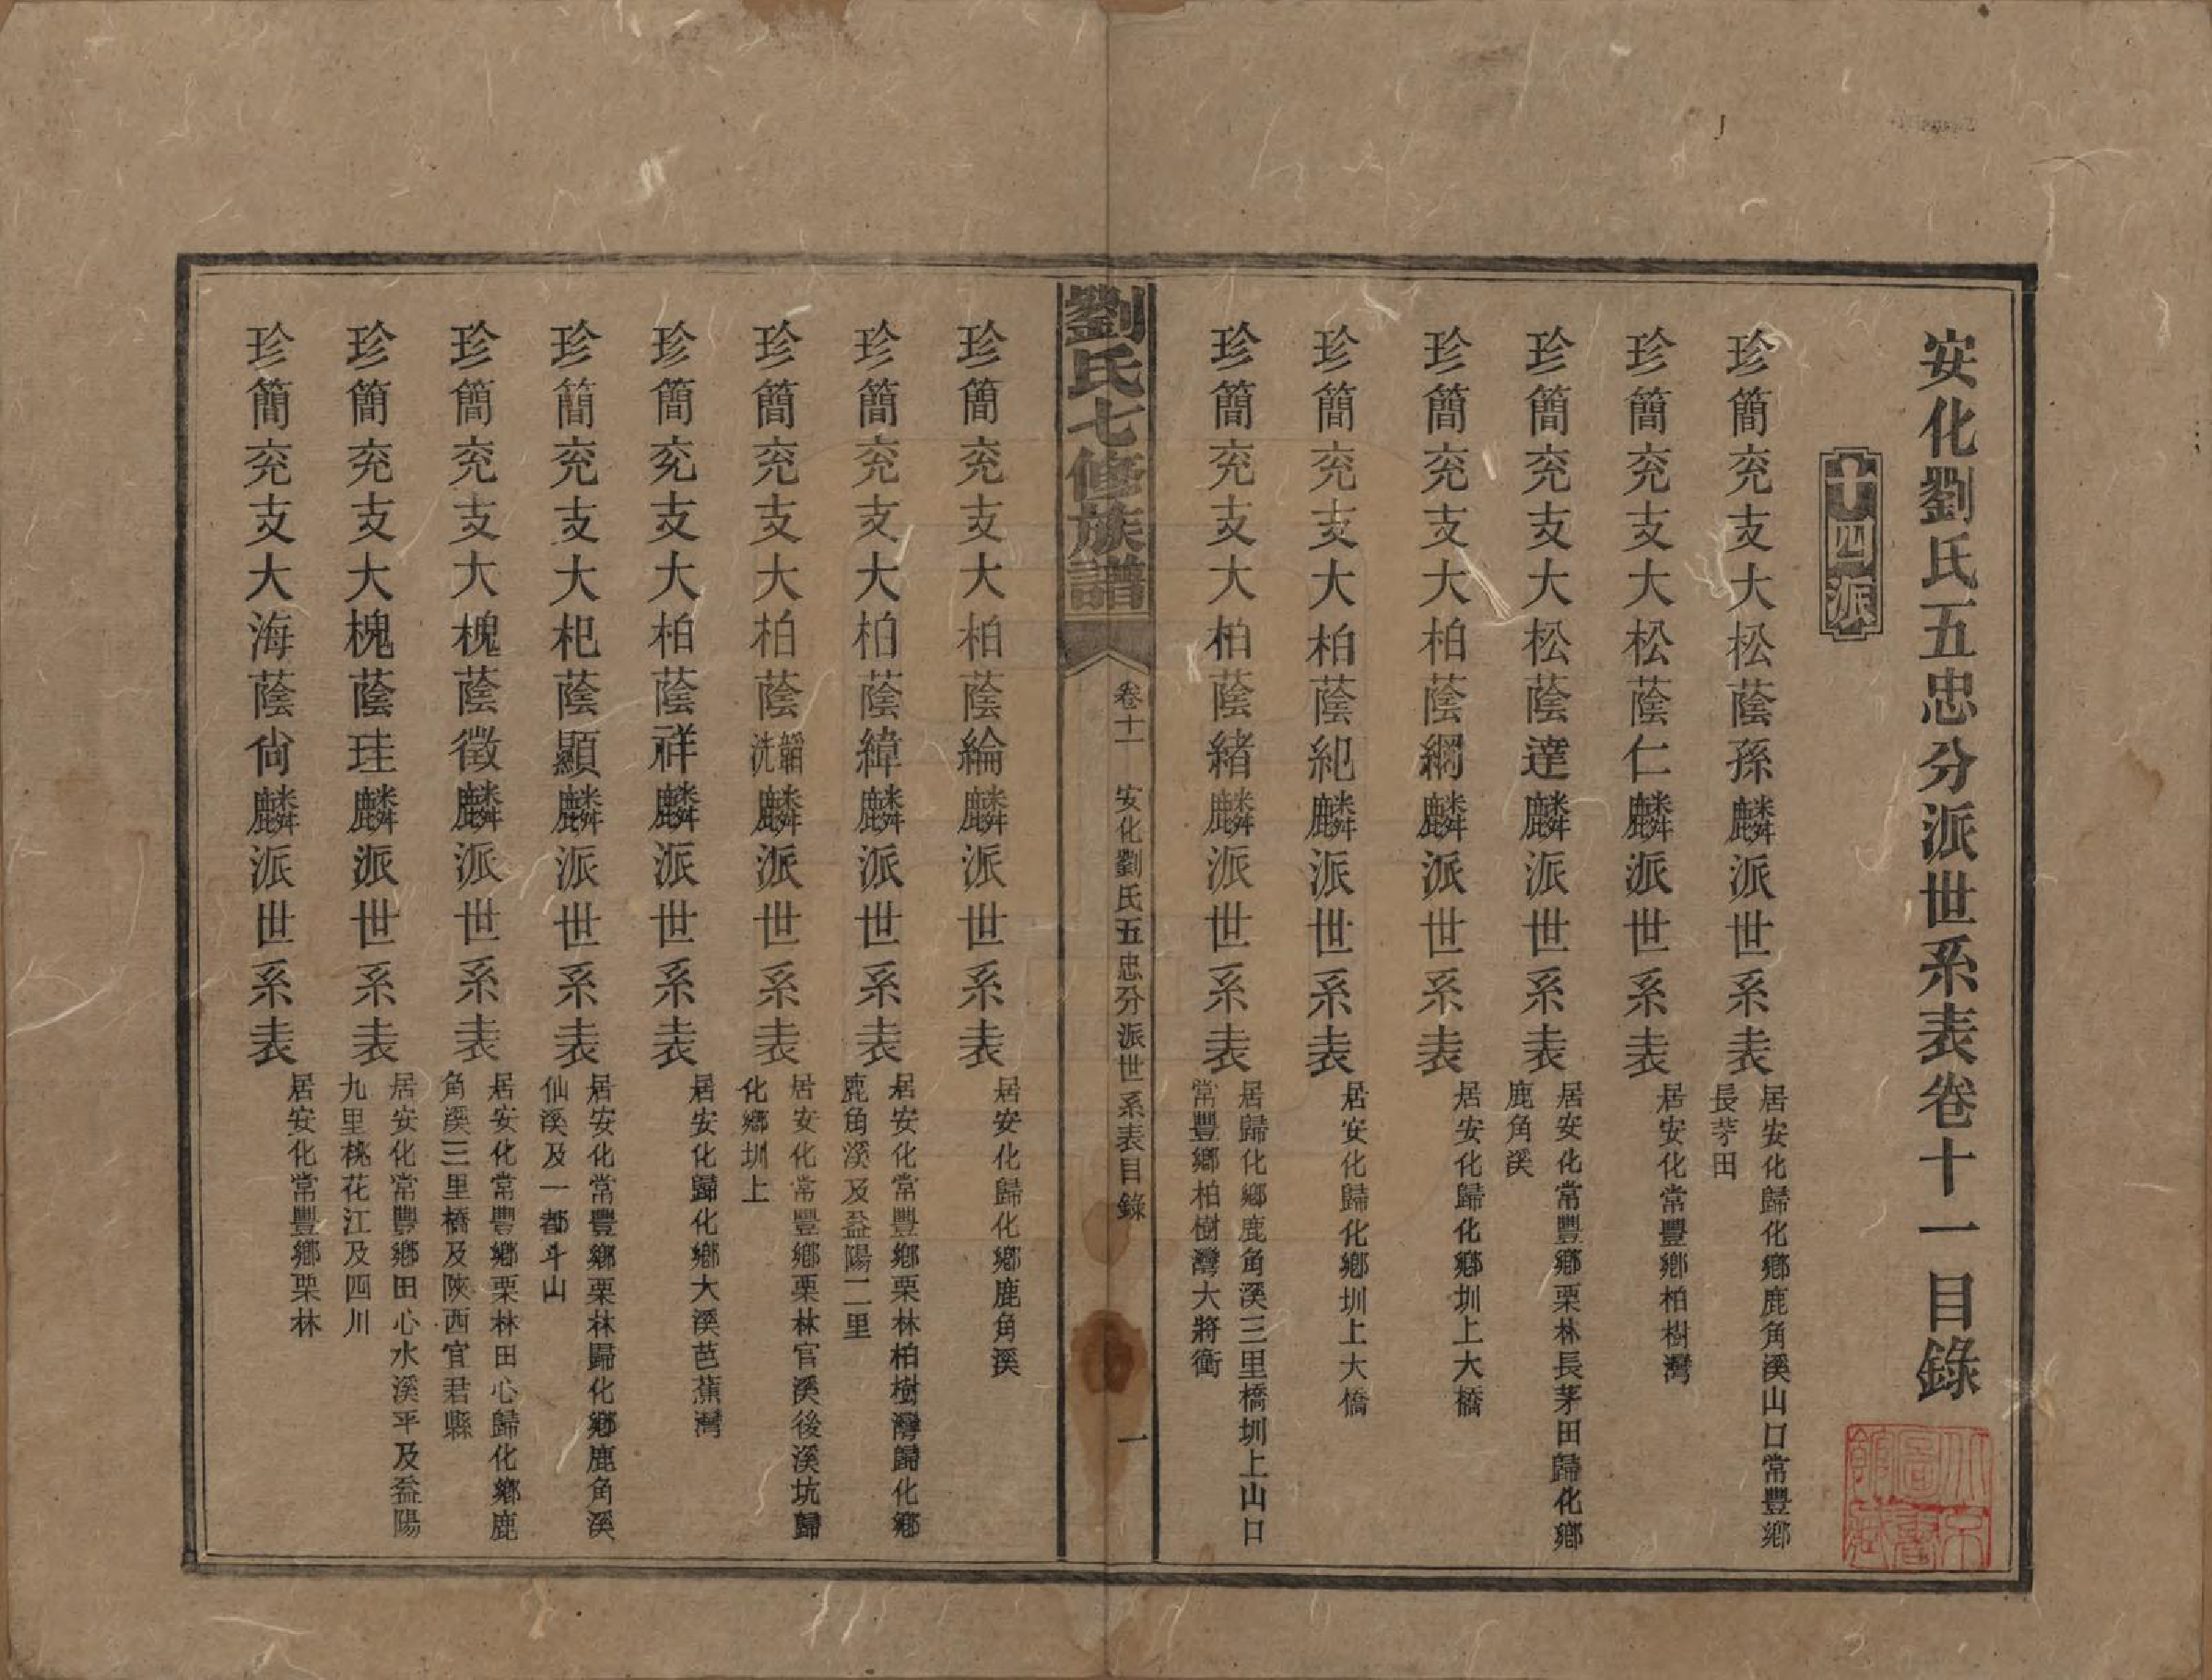 安化劉氏五忠分派世系表卷十一目錄
十四派
珍簡充支大松蔭孫麟派世系表
居安化歸化鄉鹿角溪山口常豐鄉
長茅田
珍簡充支大松蔭仁麟派世系表
居安化常豐鄉柏樹灣
珍簡充支大松蔭達麟派世系表
居安化常豐鄉栗林長茅田歸化鄉
鹿角溪
珍簡充支大柏蔭綱麟派世系表
居安化歸化鄉圳上大橋
珍簡充支大柏蔭紀麟派世系表
居安化歸化鄉圳上大橋
珍簡充支大柏蔭緒麟派世系表
居歸化鄉鹿角溪三里橋圳上山口
常豐鄉柏樹灣大將衝
劉氏七修族譜
卷十一
安化劉氏五忠分派世系表目錄
一
珍簡充支大柏蔭綸麟派世系表
居安化歸化鄉鹿角溪
珍簡充支大柏蔭緯麟派世系表
居安化常豐鄉栗林柏樹灣歸化鄉
鹿角溪及益陽二里
珍簡充支大柏蔭韜洗麟派世系表
居安化常豐鄉栗林官溪後溪坑歸
化鄉圳上
珍簡充支大柏蔭祥麟派世系表
居安化歸化鄉大溪芭蕉灣
珍簡充支大杞蔭顯麟派世系表
居安化常豐鄉栗林歸化鄉鹿角溪
仙溪及一都斗山
珍簡充支大槐蔭徵麟派世系表
居安化常豐鄉栗林田心歸化鄉鹿
角溪三里橋及陝西宜君縣
珍簡充支大槐蔭珪麟派世系表
居安化常豐鄉田心水溪平及益陽
九里桃花江及四川
珍簡充支大海蔭尙麟派世系表
居安化常豐鄉栗林
北京
圖書
館藏